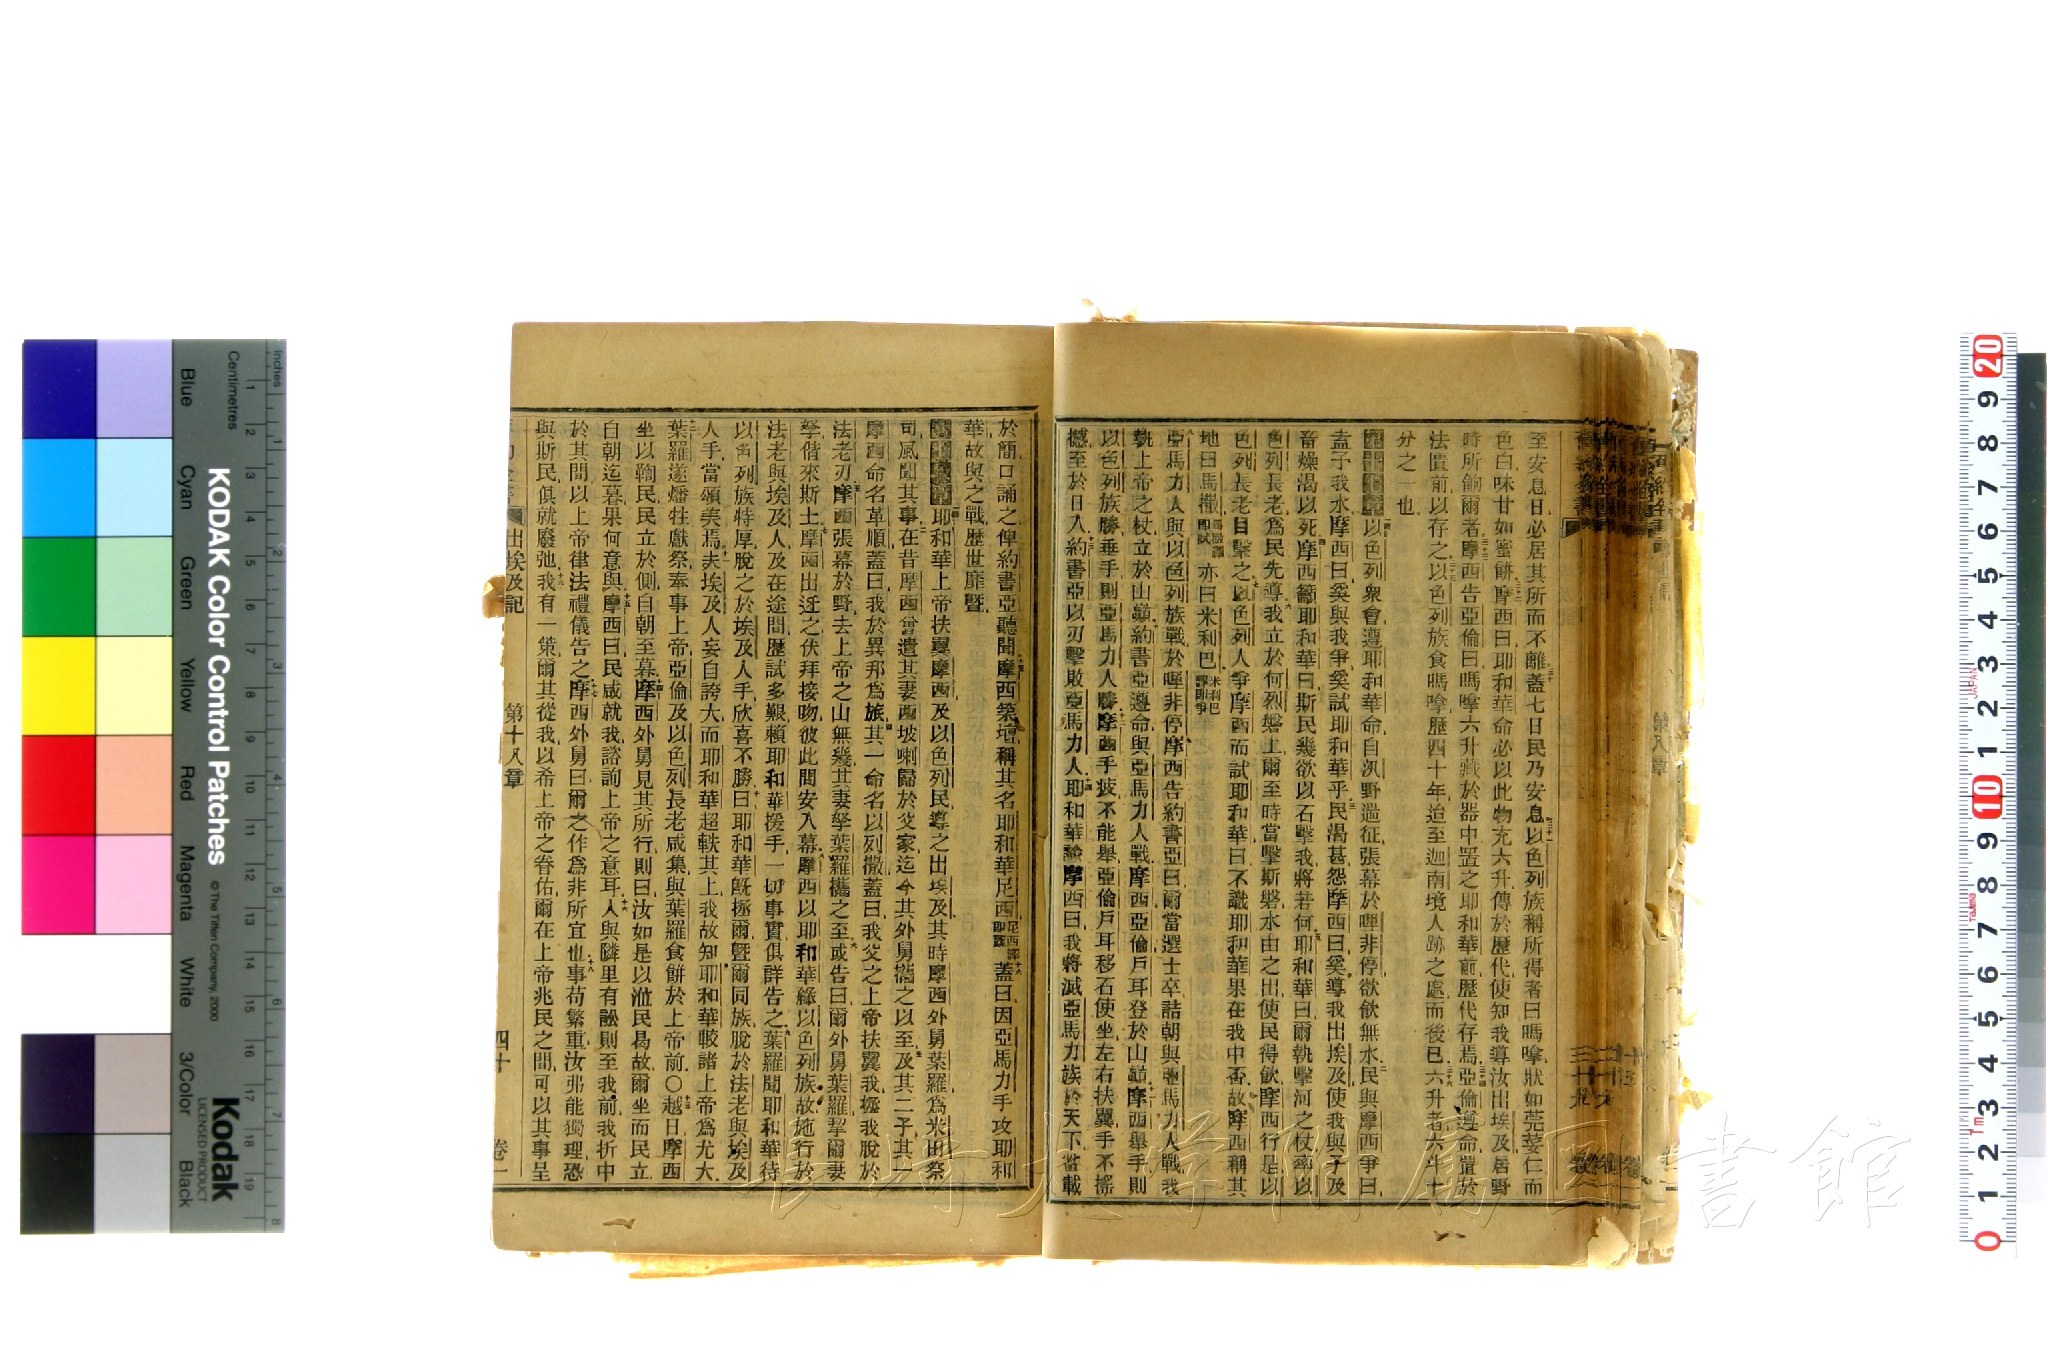 至安息日必居其所而不離蓋七日民乃安息以色列族稱所得者曰嗎嗱狀如莞荽仁而
色白味甘如蜜餅摩西曰耶和華命必以此物充六升傳於歷代使知我導汝出埃及居野
時所餉爾者摩西告亞倫曰嗎嗱六升藏於器中置之耶和華前歷代存焉亞倫遵命置於
法匱前以存之以色列族食嗎嗱歷四十年迨至迦南境人跡之處而後已六升者六斗十
分之一也
以色列眾會遵耶和華命自汛野遄征張幕於唎非停欲飲無水民與摩西爭曰
盍予我水摩西曰奚與我爭奚試耶和華乎民渴甚怨摩西曰奚導我出埃及使我與子及
畜燥渴以死摩西籲耶和華曰斯民幾欲以石擊我將若何耶和華曰爾執擊河之杖率以
色列長老為民先導我立於何烈磐上爾至時當擊斯磐水由之出使民得飲摩西行是以
色列長老目擊之以色列人爭摩西而試耶和華曰不識耶和華果在我中否故摩西稱其
地曰馬撒馬撒譯即試亦曰米利巴米利巴譯即爭
亞馬力人與以色列族戰於唎非停摩西告約書亞曰爾當選士卒詰朝與亞馬力人戰我
執上帝之杖立於山巔約書亞遵命與亞馬力人戰摩西亞倫戶耳登於山巔摩西舉手則
以色列族勝垂手則亞馬力人勝摩西手疲不能舉亞倫戶耳移石使坐左右扶翼手不搖
撼至於日入約書亞以刃擊敗亞馬力人耶和華諭摩西曰我將滅亞馬力族於天下當載
於簡口誦之俾約書亞聽聞摩西築壇稱其名耶和華尼西尼西譯即旗蓋曰因亞馬力手攻耶和
華故與之戰歷世靡暨
耶和華上帝扶翼摩西及以色列民導之出埃及其時摩西外舅葉羅為米田祭
司風聞其事在昔摩西曾遣其妻西坡喇歸於父家迄今其外舅攜之以至及其二子其一
摩西命名革順蓋曰我於異邦為旅其一命名以列撒蓋曰我父之上帝扶翼我拯我脫於
法老刃摩西張幕於野去上帝之山無幾其妻孥葉羅攜之至或告曰爾外舅葉羅挈爾妻
孥偕來斯土摩西出迓之伏拜接吻彼此問安入幕摩西以耶和華緣以色列族故施行於
法老與埃及人及在途間歷試多艱賴耶和華援手一切事實俱詳告之葉羅聞耶和華待
以色列族特厚脫之於埃及人手欣喜不勝曰耶和華既拯爾暨爾同族脫於法老與埃及
人手當頌美焉夫埃及人妄自誇大而耶和華超軼其上我故知耶和華較諸上帝為尤大
葉羅遂燔牲獻祭奉事上帝亞倫及以色列長老咸集與葉羅食餅於上帝前○越日摩西
坐以鞫民民立於側自朝至暮摩西外舅見其所行則曰汝如是以涖民曷故爾坐而民立
自朝迄暮果何意與摩西曰民咸就我諮詢上帝之意耳人與隣里有訟則至我前我折中
於其間以上帝律法禮儀告之摩西外舅曰爾之作為非所宜也事苟繁重汝弗能獨理恐
與斯民俱就廢弛我有一策爾其從我以希上帝之眷佑爾在上帝兆民之間可以其事呈
出埃及記 第十八章 四十 卷一
長崎大学附属図書館
KODAK Color Control Patches
© The Tiffen Company, 2000
Kodak
LICENSED PRODUCT
Blue Cyan Green Yellow Red Magenta White 3/Color Black
Inches
Centimetres
1 2 3 4 5 6 7 8 9 10 11 12 13 14 15 16 17 18 19
1 2 3 4 5 6 7 8
20 9 8 7 6 5 4 3 2 1 10 9 8 7 6 5 4 3 2 1 0
JAPAN
1m